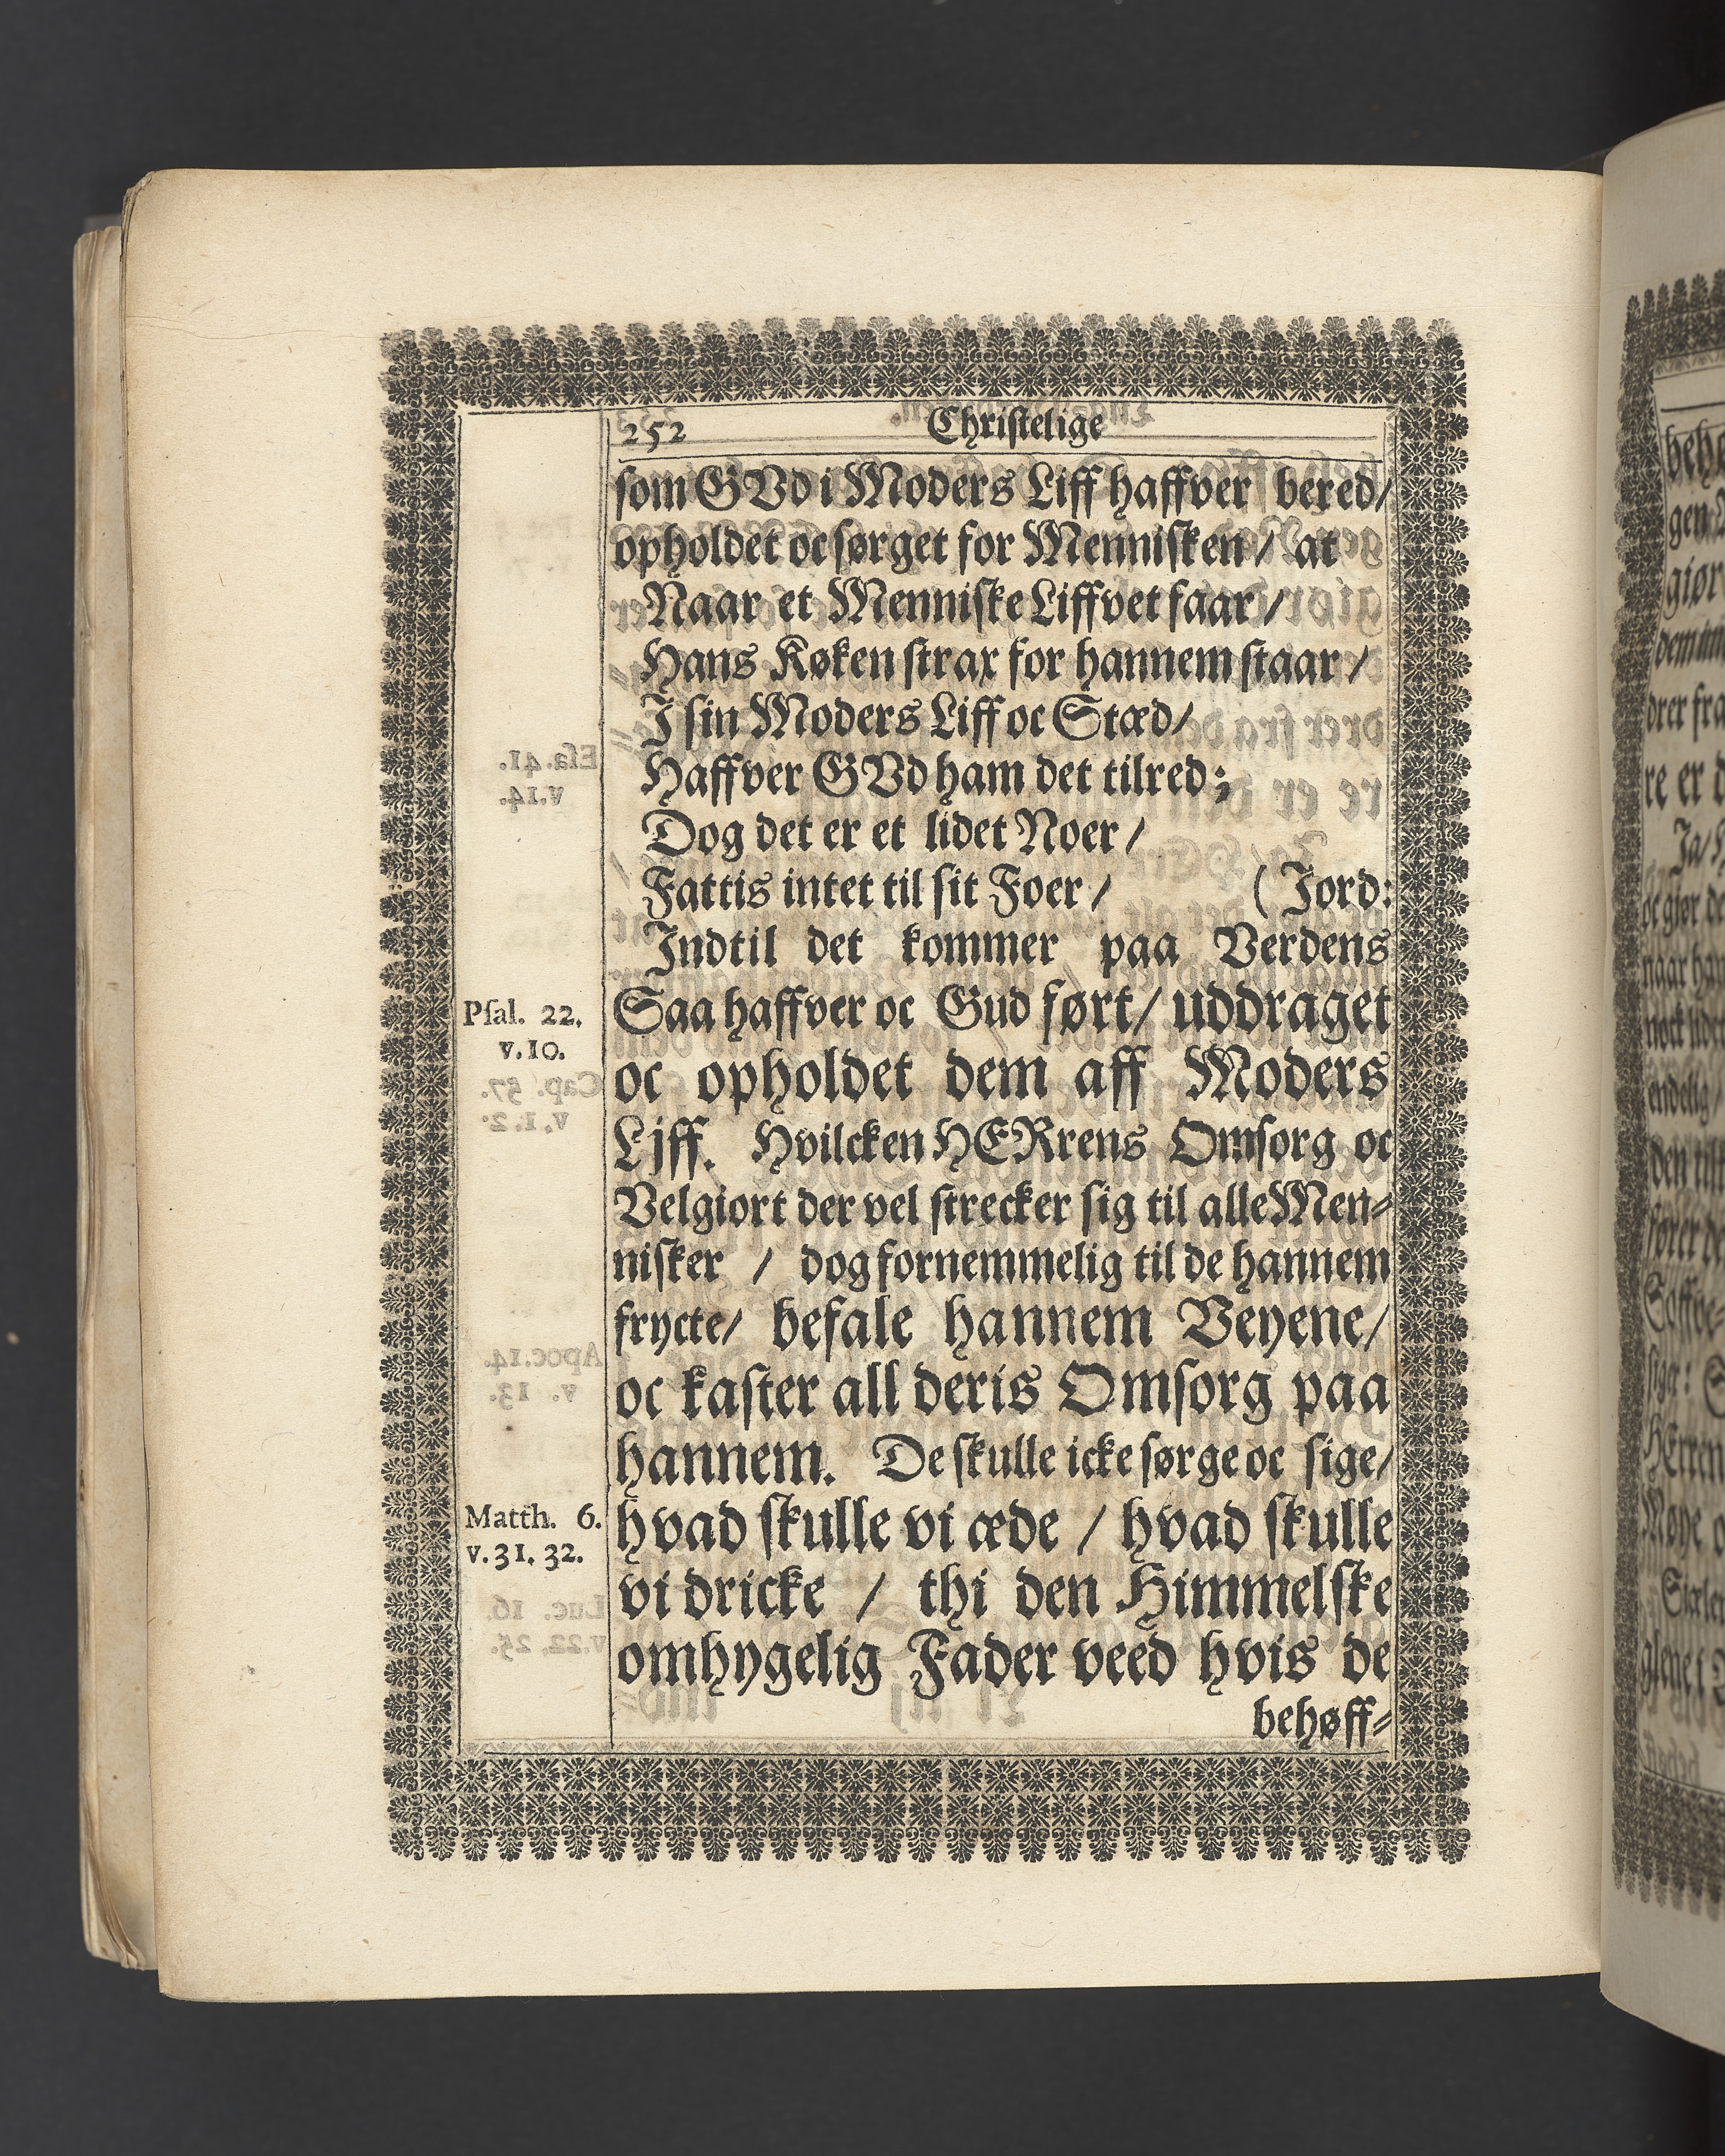 252 Christelige
som GVd i Moders Liff haffver bered/
opholdet oc sørget for Mennisken / at
Naar et Menniske Liffvet faar /
Hans Køken strax for hannem staar /
I sin Moders Liff oc Stæd /
Haffver GVd ham det tilred;
Dog det er et lidet Noer /
Fattis intet til sit Foer / ( Jord:
Indtil det kommer paa Verdens
Psal. 22.
v. 10.
Saa haffver oc Gud ført / uddraget
oc opholdet dem aff Moders
Ljff. Hvilcken HERrens Omsorg oc
Velgiort der vel strecker sig til alle Men-
nisker / dog fornemmelig til de hannem
frycte / befale hannem Veyene /
oc kaster all deris Omsorg paa
hannem. De skulle icke sørge oc sige /
Matth. 6.
v. 31. 32.
hvad skulle vi æde / hvad skulle
vi dricke / thi den Himmelske
omhygelig Fader veed hvis de
behøff-